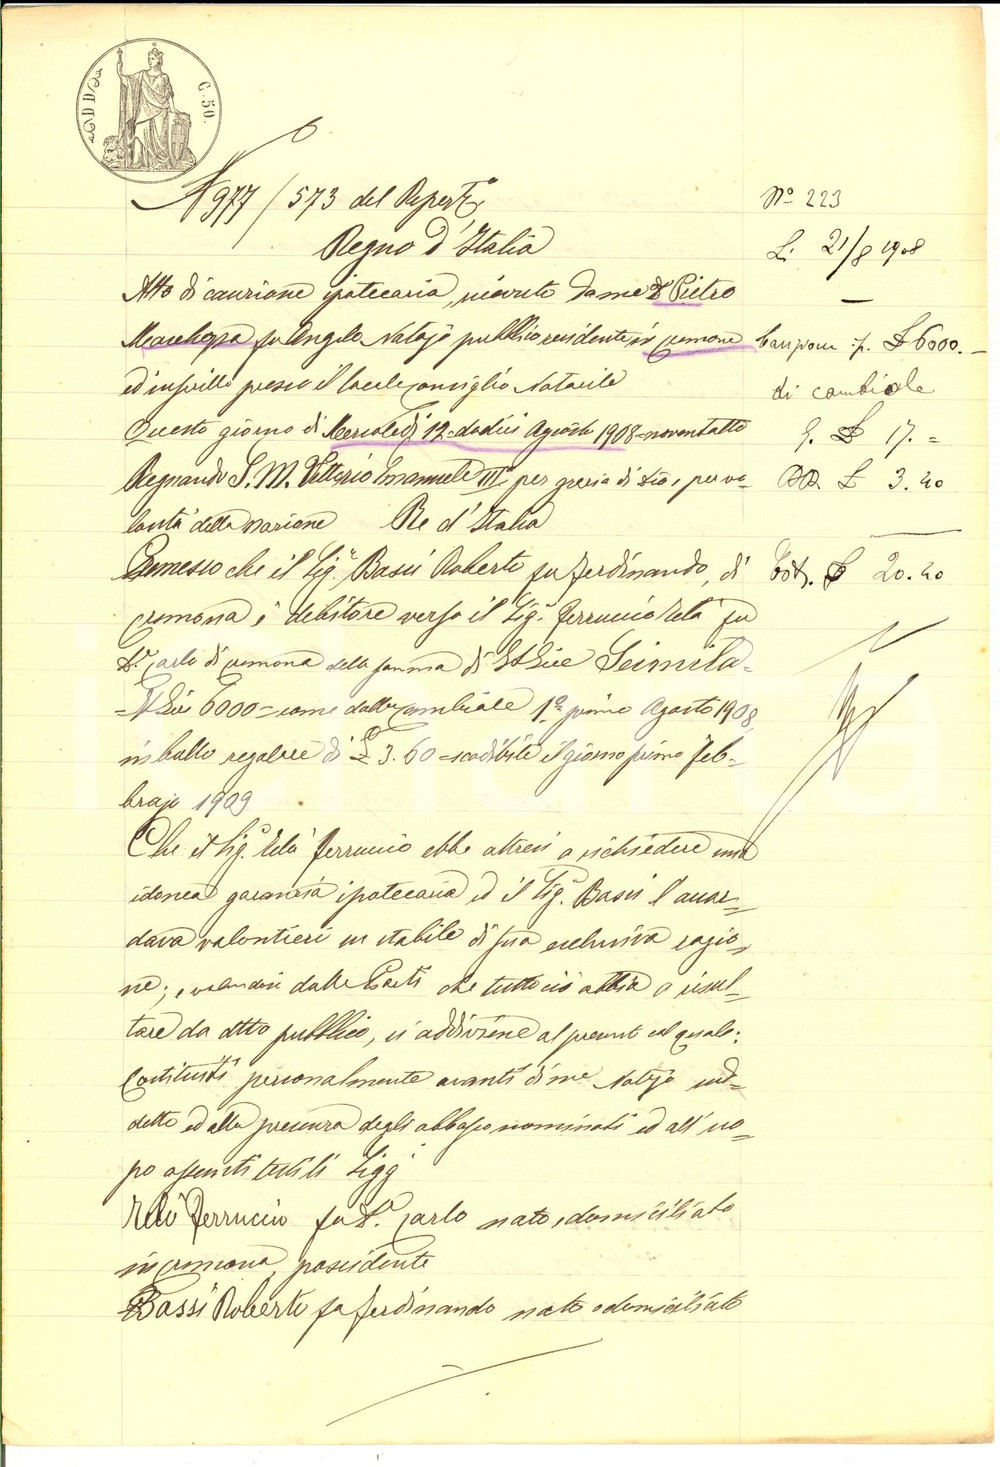 C. 50.
N 977/573 del Repert.°
Regno d'Italia
Atto di cauzione ipotecaria, ricevuto da me Dr Pietro
fu Angelo Notajo pubblico residente in Cremona
ed inscritto presso il locale Consiglio Notarile
Questo giorno di Mercoledì 12 = dodici Agosto 1908 = noventotto
Regnando S. M. Vittorio Emanuele III° per grazia di Dio e per vo-
lontà della Nazione Re d'Italia
Premesso che il Sig.r Bassi Roberto fu Ferdinando, di
Cremona è debitore verso il Sig.r Ferruccio Relà fu
Dr. Carlo di Cremona della somma di Lire Seimila =
= Lire 6000 = come dalla cambiale 1° primo Agosto 1908,
in bollo regolare di £ 3.60 = scadibile il giorno primo Feb-
brajo 1909
Che il Sig.r Relà Ferruccio ebbe altresì a richiedere una
idonea garanzia ipotecaria ed il Sig.r Bassi l'accor-
dava volontieri su stabile di sua esclusiva ragio-
ne; e volendosi dalle Parti che tutto ciò abbia a risul-
tare da atto pubblico, si addiviene al presente col quale:
Costituiti personalmente avanti di me Notajo sud-
detto ed alla presenza degli abbasso nominati ed all'uo-
po assunti testi li Sigg.i
Relà Ferruccio fu Dr. Carlo nato e domiciliato
in Cremona, possidente
Bassi Roberto fu Ferdinando nato e domiciliato
N° 223
Li 21/8 1908
—
£ 6000. —
di cambiale
£ 17. =
£ 3.40
Tot. £ 20.40